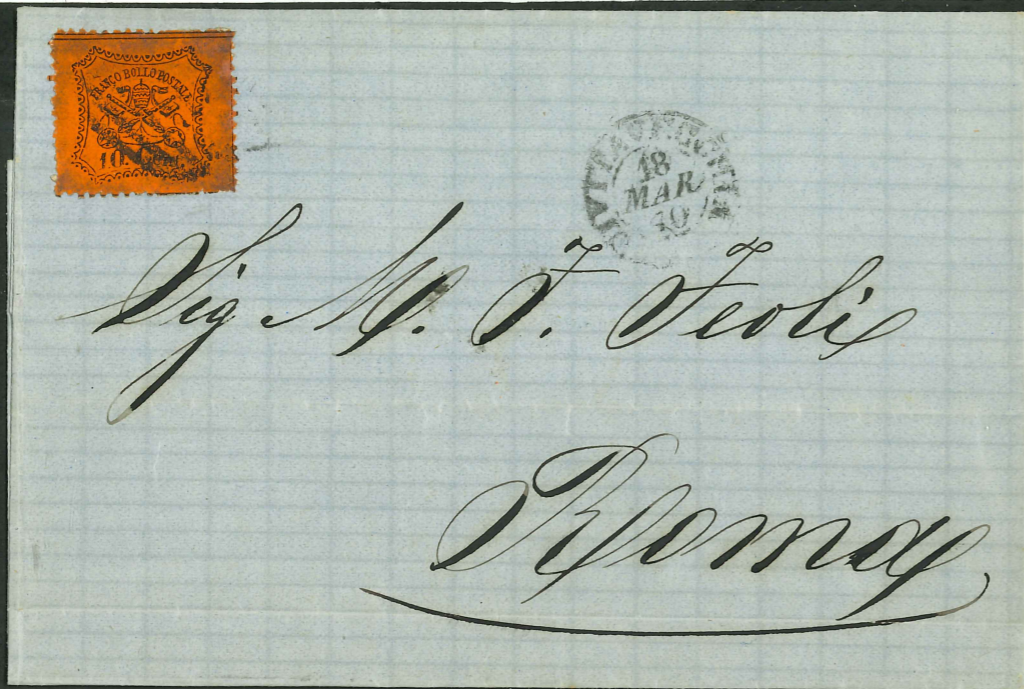 FRANCO BOLLO POSTALE
10
CIVITAVECCHIA
18
MAR
70
Sig M. F. Feoli
Roma